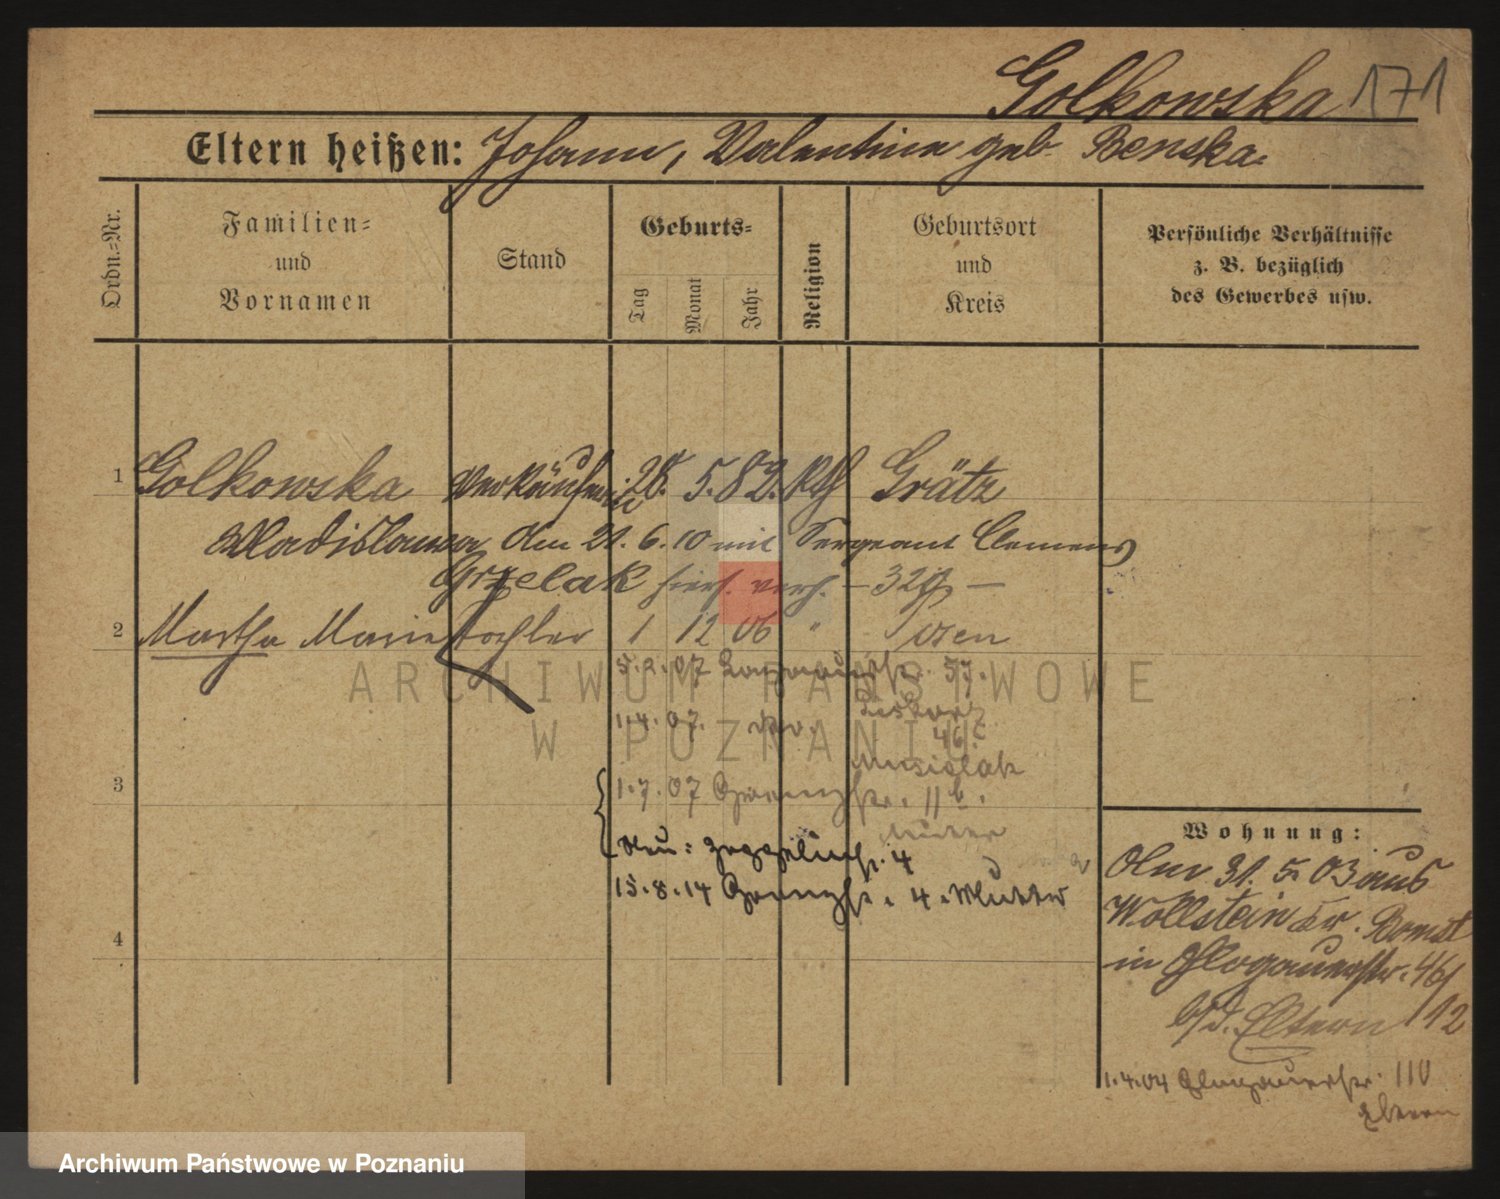 Golkowska 171
Eltern heißen: Johann, Valentine geb. Benska.
Ordn.=Nr.
Familien=
und
Vornamen
Stand
Geburts=
Tag
Monat
Jahr
Religion
Geburtsort
und
Kreis
Persönliche Verhältnisse
z. B. bezüglich
des Gewerbes usw.
1 Golkowska Verkäuferin 28. 5. 82. Kth Grätz
Wladislawa Am 21. 6. 10 mit Sergeant Clemens
Grzelak hiers. verh.
2 Martha Marie Tochter 1 12 06 " Posen
5.2.07 57.
1.4.07. 46.
Musielak
3
1.7.07 Grenzstr. 11b.
Mutter
Neu: Zeppelinstr. 4
15.8.14 Grenzstr. 4. Mutter
4
Wohnung:
Am 31. 5. 03 aus
Wollstein Kr. Bomst
in Glogauerstr. 46/
b/d. Eltern 112
1.4.04 Glogauerstr. 110
Eltern
ARCHIWUM PAŃSTWOWE
W POZNANIU
Archiwum Państwowe w Poznaniu